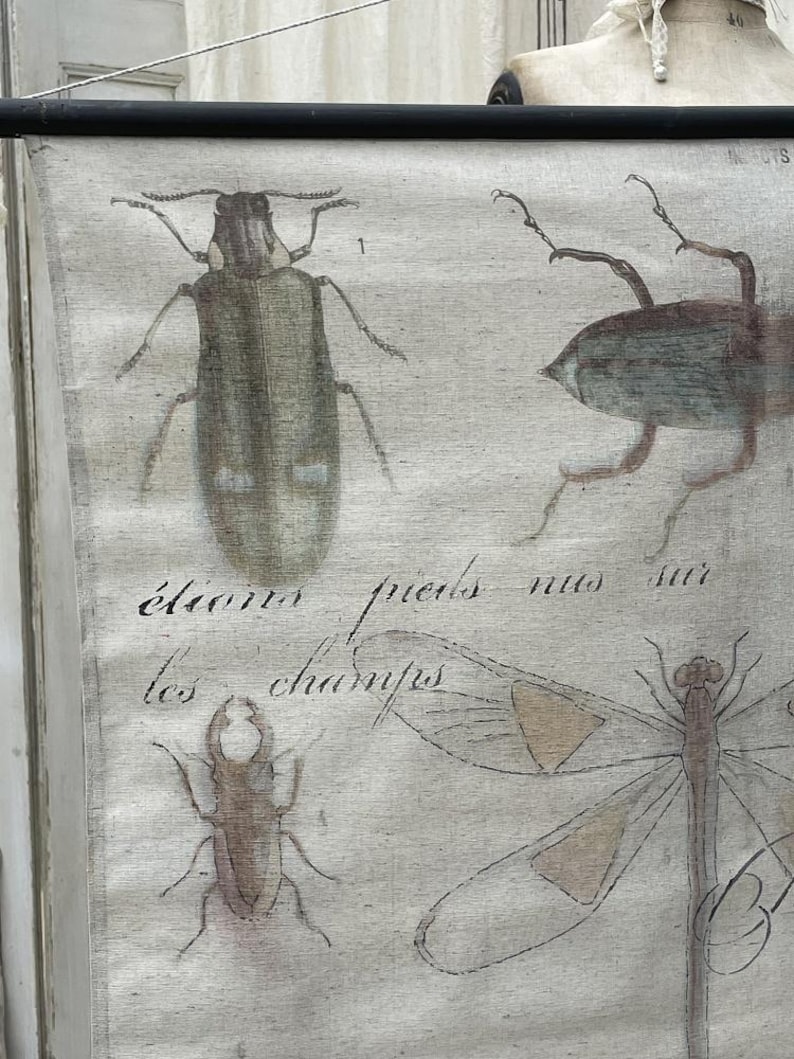 40
1
étions pieds nus sur
les champs